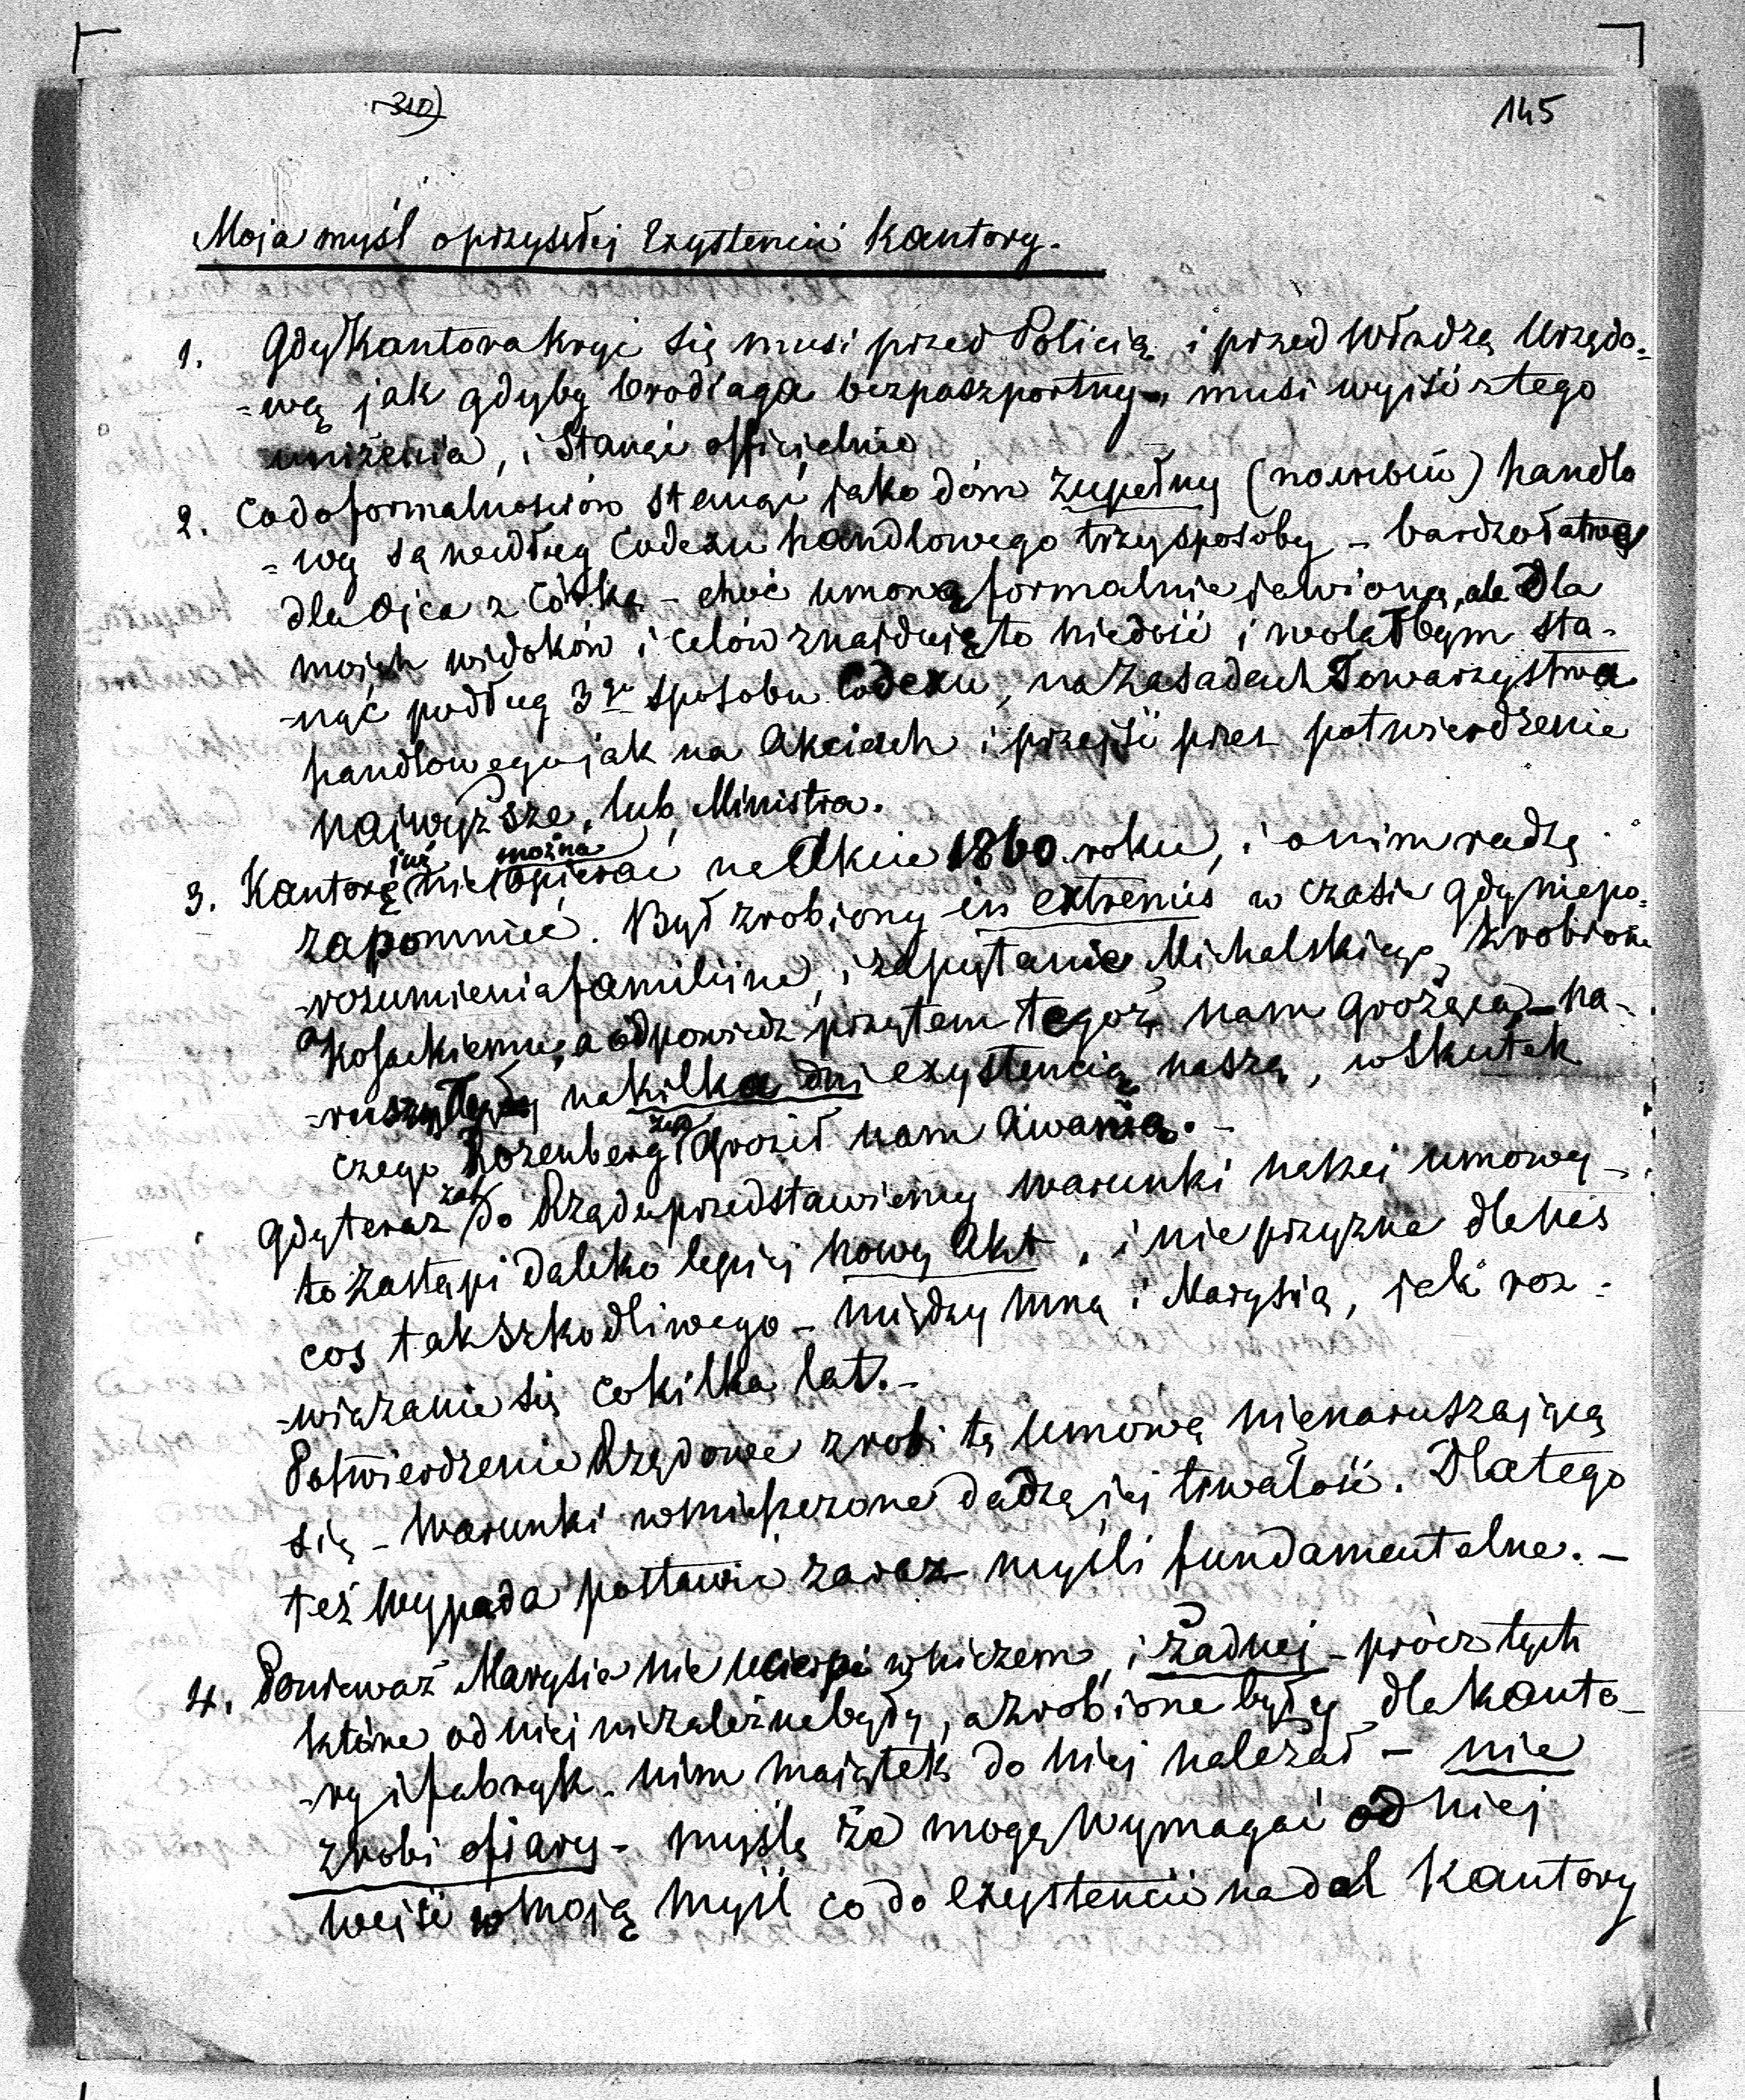 310)
145
Moja myśl o przyszłej Exystencii Kantory.
1. Gdy Kantora kryć się musi przed Policią i przed Władzą Urzędo=
=wą jak gdyby brodiaga bezpaszportny, musi wyiść z tego
uniżenia, i Stanąć officialnie
2. Co do formalnosciów stanąć jako dóm zupełny (nowbiu) handlo
=wy są według Codexu handlowego trzy sposoby – bardzo łatwe
dla Ojca z Córką – choć umową formalnie jawioną, ale Dla
moich widoków i celów znajduię to niedość i wolałbym sta-
-nąć podług 3go sposobu Codexu, na Zasadach Towarzystwa
handlowego jak na Akciach i przejść przez potwierdzenie
najwyższe, lub Ministra.
3. Kantorę już nie można opierać na Akcie 1860 roku, i o nim radzę
zapomnieć. Był zrobiony in extremis w czasie gdy niepo=
-rozumienia familiine, i zapytanie Michalskiego zrobione
Kossackiemu, a odpowiedz przytem tegoż nam grożąca – na-
-ruszyły na kilka dni exystencią naszą, wskutek
czego Rozenberg groził nam Awanią. –
Gdy teraz zaś do Rządu przedstawiemy warunki naszei umowy –
to zastąpi daleko lepiej nowy Akt, i nie przyzna dla nas
cos tak szkodliwego – między mną i Marysią, jak roz-
-wiązanie się co kilka lat. –
Potwierdzenie Rządowe zrobi tę Umową nienaruszającą
się – warunki wmieszczone dadzą jej trwałość. Dlatego
też wypada postawić zaraz myśli fundamentalne. –
4. Ponieważ Marysia nie ucierpi w niczem, i żadnej – prócz tych
które od niej nizależne będą, a zrobione były dla Kanto-
-ry i fabryk – nim maiątek do niej należał – nie
zrobi ofiary – myślę że mogę wymagać od niej
wejść w moją myśl co do Exystencii nadal Kantory